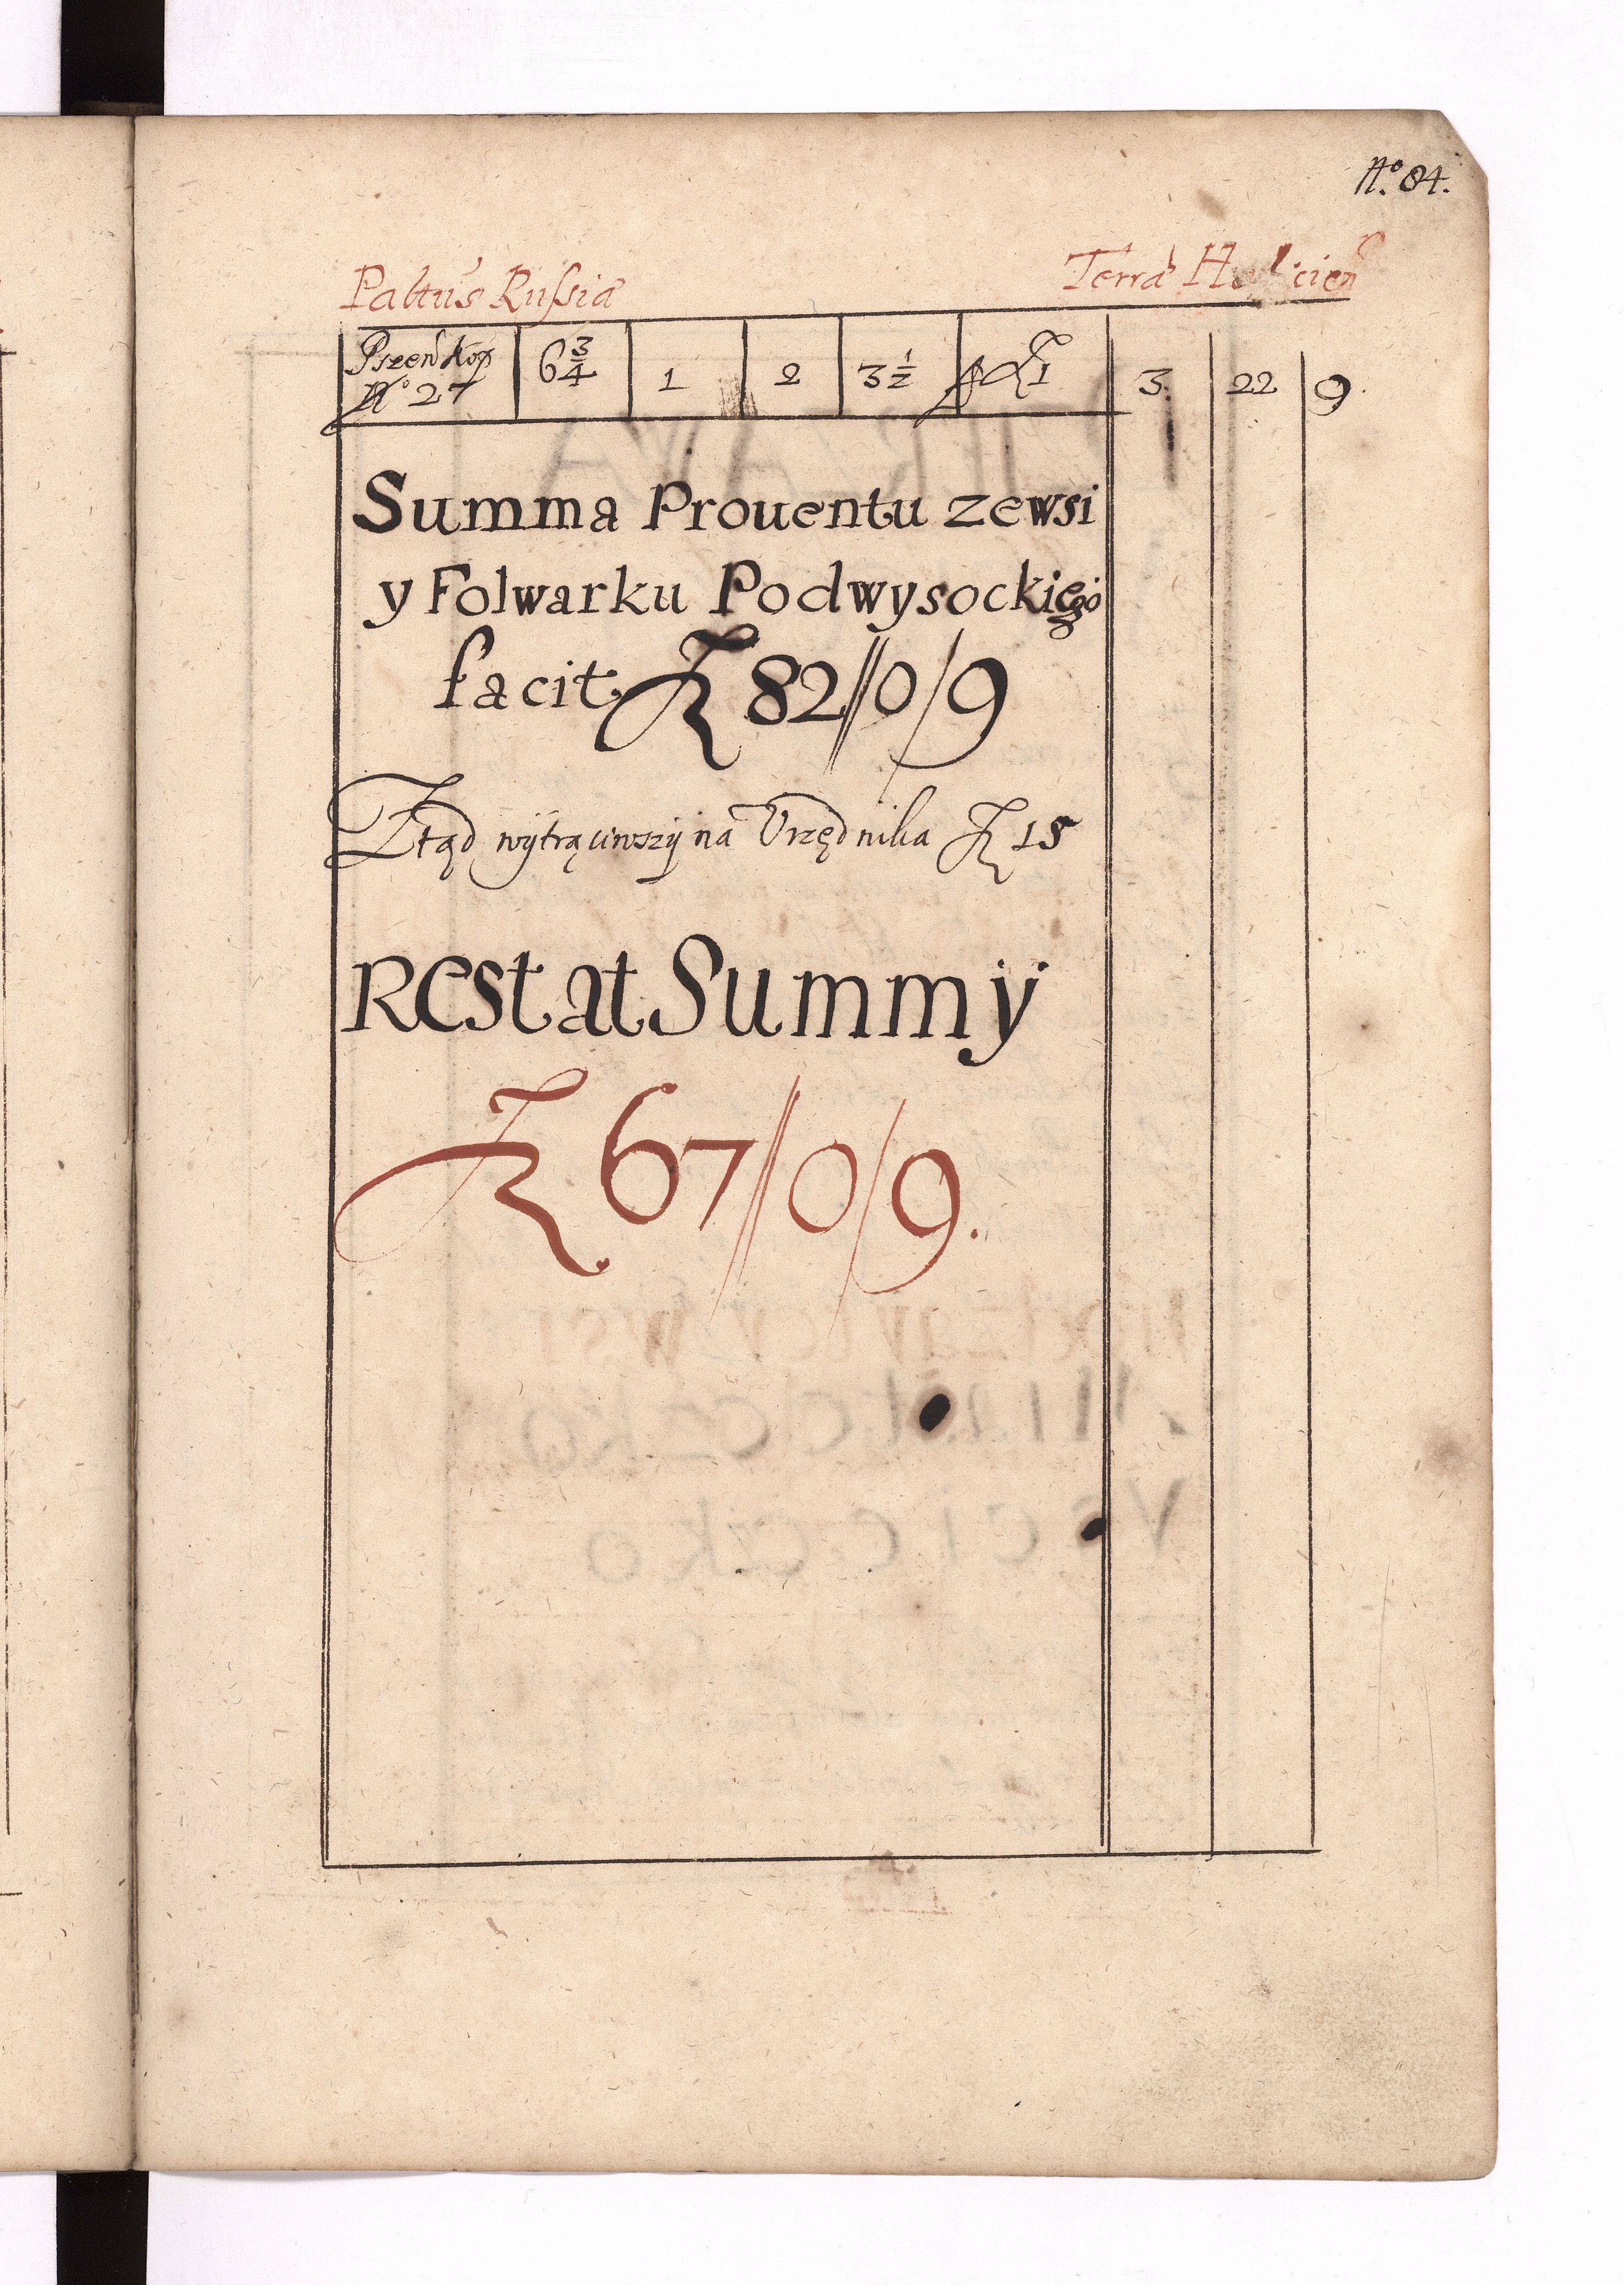 No. 84.
Paltus Russia Terra Halicien
Pszen kop No 27 6 3/4 1 2 3 1/2 a fl 1 3. 22 9.
Summa Prouentu zewsi
y Folwarku Podwysockiego
facit fl 82//0/9
Ztąd wytrąciwszy na Vrzędnika fl 15
Restat Summy
fl 67//0/9.